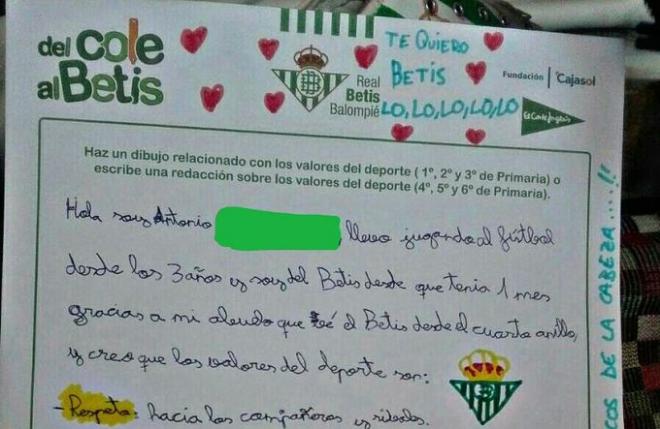 del Cole
al Betis
Real
Betis
Balompié
TE QUIERO
BETIS
LO, LO, LO, LO, LO
Fundación | Cajasol
El Corte Inglés
Haz un dibujo relacionado con los valores del deporte ( 1º, 2º y 3º de Primaria) o
escribe una redacción sobre los valores del deporte (4º, 5º y 6º de Primaria).
Hola soy Antonio , llevo jugando al fútbol
desde los 3 años y soy del Betis desde que tenia 1 mes
gracias a mi abuelo que ve el Betis desde el cuarto anillo,
y creo que los valores del deporte son:
- Respeto: hacia los compañeros y rivales.
COS DE LA CABEZA....!!